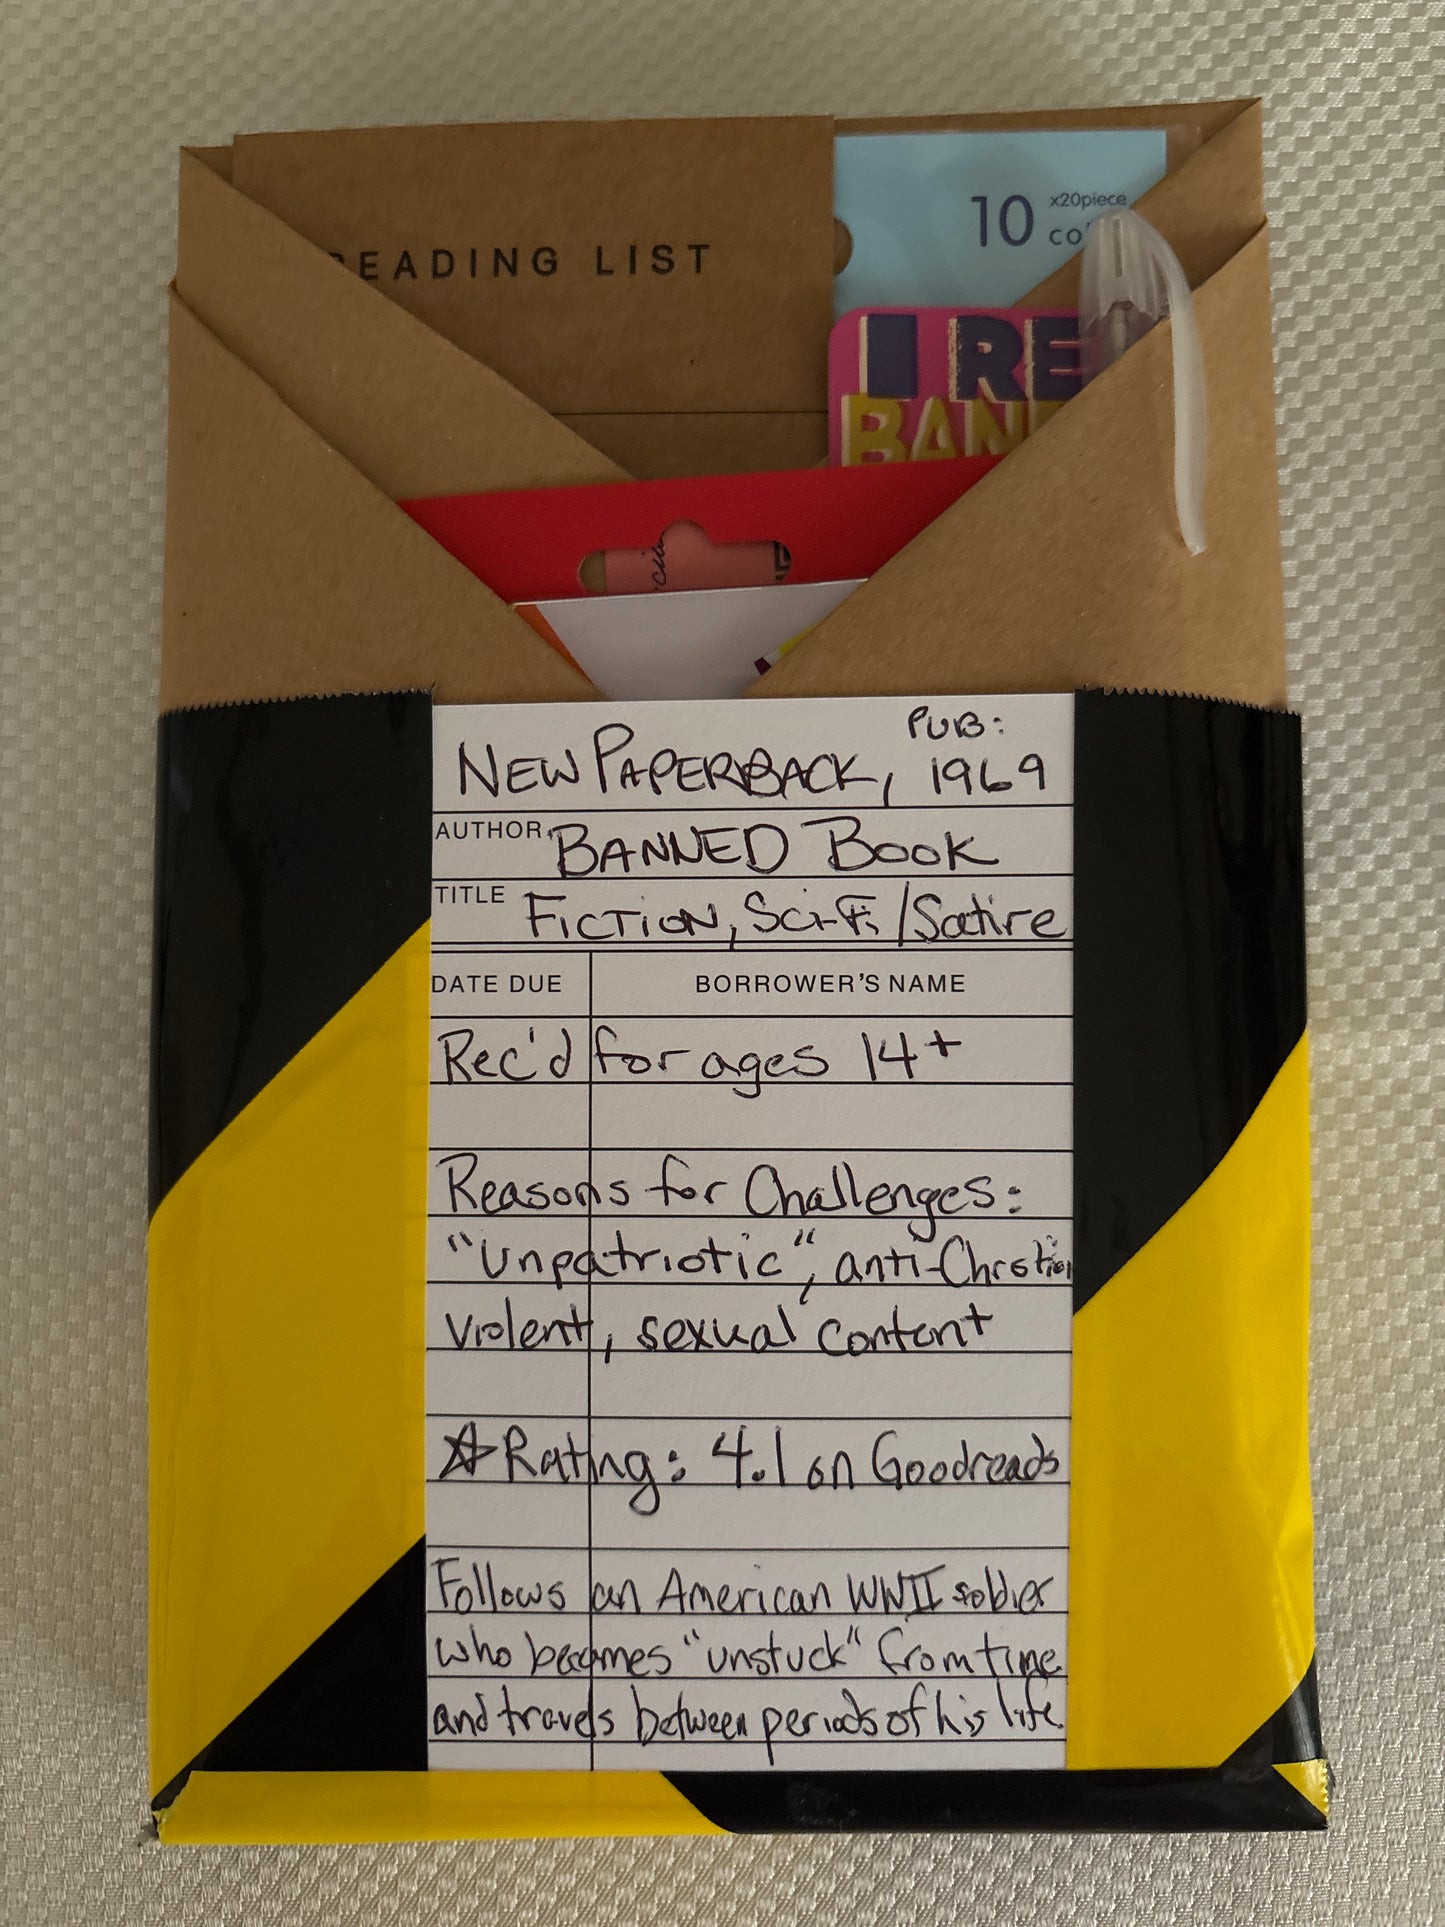 READING LIST
10 x20piece
co
I RE
BAN
PUB:
NEW PAPERBACK, 1969
AUTHOR BANNED BOOK
TITLE FICTION, Sci-Fi/Satire
DATE DUE BORROWER'S NAME
Rec'd for ages 14+
Reasons for Challenges:
"Unpatriotic", anti-Christian
violent, sexual content
☆ Rating: 4.1 on Goodreads
Follows an American WWII soldier
who becomes "unstuck" from time
and travels between periods of his life.